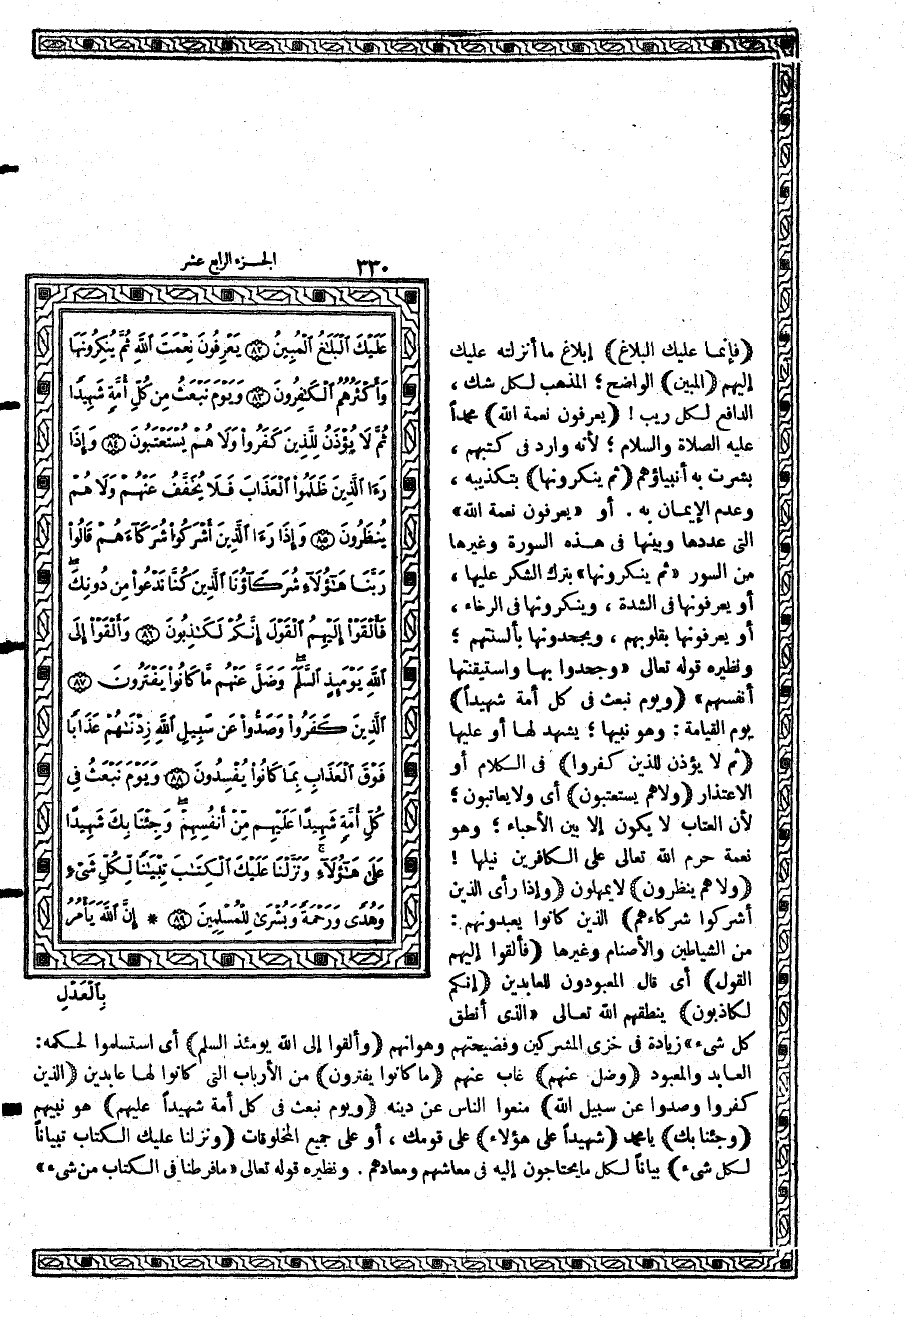 ٣٣٠
الجزء الرابع عشر
عَلَيْكَ ٱلْبَلَٰغُ ٱلْمُبِينُ ٨٢ يَعْرِفُونَ نِعْمَتَ ٱللَّهِ ثُمَّ يُنكِرُونَهَا
وَأَكْثَرُهُمُ ٱلْكَٰفِرُونَ ٨٣ وَيَوْمَ نَبْعَثُ مِن كُلِّ أُمَّةٍ شَهِيدًا
ثُمَّ لَا يُؤْذَنُ لِلَّذِينَ كَفَرُوا۟ وَلَا هُمْ يُسْتَعْتَبُونَ ٨٤ وَإِذَا
رَءَا ٱلَّذِينَ ظَلَمُوا۟ ٱلْعَذَابَ فَلَا يُخَفَّفُ عَنْهُمْ وَلَا هُمْ
يُنظَرُونَ ٨٥ وَإِذَا رَءَا ٱلَّذِينَ أَشْرَكُوا۟ شُرَكَآءَهُمْ قَالُوا۟
رَبَّنَا هَٰٓؤُلَآءِ شُرَكَآؤُنَا ٱلَّذِينَ كُنَّا نَدْعُوا۟ مِن دُونِكَ ۖ
فَأَلْقَوْا۟ إِلَيْهِمُ ٱلْقَوْلَ إِنَّكُمْ لَكَٰذِبُونَ ٨٦ وَأَلْقَوْا۟ إِلَى
ٱللَّهِ يَوْمَئِذٍ ٱلسَّلَمَ ۖ وَضَلَّ عَنْهُم مَّا كَانُوا۟ يَفْتَرُونَ ٨٧
ٱلَّذِينَ كَفَرُوا۟ وَصَدُّوا۟ عَن سَبِيلِ ٱللَّهِ زِدْنَٰهُمْ عَذَابًا
فَوْقَ ٱلْعَذَابِ بِمَا كَانُوا۟ يُفْسِدُونَ ٨٨ وَيَوْمَ نَبْعَثُ فِى
كُلِّ أُمَّةٍ شَهِيدًا عَلَيْهِم مِّنْ أَنفُسِهِمْ ۖ وَجِئْنَا بِكَ شَهِيدًا
عَلَىٰ هَٰٓؤُلَآءِ ۚ وَنَزَّلْنَا عَلَيْكَ ٱلْكِتَٰبَ تِبْيَٰنًا لِّكُلِّ شَىْءٍ
وَهُدًى وَرَحْمَةً وَبُشْرَىٰ لِلْمُسْلِمِينَ ٨٩ * إِنَّ ٱللَّهَ يَأْمُرُ
بِٱلْعَدْلِ
(فإنما عليك البلاغ) إبلاغ ما أنزلته عليك
إليهم (المبين) الواضح؛ المذهب لكل شك،
الدافع لكل ريب! (يعرفون نعمة الله) محمداً
عليه الصلاة والسلام؛ لأنه وارد فى كتبهم،
بشرت به أنبياؤهم (ثم ينكرونها) بتكذيبه،
وعدم الإيمان به. أو «يعرفون نعمة الله»
التى عددها وبينها فى هذه السورة وغيرها
من السور «ثم ينكرونها» بترك الشكر عليها،
أو يعرفونها فى الشدة، وينكرونها فى الرخاء،
أو يعرفونها بقلوبهم، ويجحدونها بألسنتهم؛
ونظيره قوله تعالى «وجحدوا بها واستيقنتها
أنفسهم» (ويوم نبعث فى كل أمة شهيداً)
يوم القيامة: وهو نبيها؛ يشهد لها أو عليها
(ثم لا يؤذن للذين كفروا) فى الكلام أو
الاعتذار (ولاهم يستعتبون) أى ولا يعاتبون؛
لأن العتاب لا يكون إلا بين الأحباء؛ وهو
نعمة حرم الله تعالى على الكافرين نيلها!
(ولاهم ينظرون) لا يمهلون (وإذا رأى الذين
أشركوا شركاءهم) الذين كانوا يعبدونهم:
من الشياطين والأصنام وغيرها (فألقوا إليهم
القول) أى قال المعبودون للعابدين (إنكم
لكاذبون) ينطقهم الله تعالى «الذى أنطق
كل شىء» زيادة فى خزى المشركين وفضيحتهم وهوانهم (وألقوا إلى الله يومئذ السلم) أى استسلموا لحكمه:
العابد والمعبود (وضل عنهم) غاب عنهم (ما كانوا يفترون) من الأرباب التى كانوا لها عابدين (الذين
كفروا وصدوا عن سبيل الله) منعوا الناس عن دينه (ويوم نبعث فى كل أمة شهيداً عليهم) هو نبيهم
(وجئنا بك) يا محمد (شهيداً على هؤلاء) على قومك، أو على جميع المخلوقات (ونزلنا عليك الكتاب تبياناً
لكل شىء) بياناً لكل ما يحتاجون إليه فى معاشهم ومعادهم. ونظيره قوله تعالى «ما فرطنا فى الكتاب من شىء»